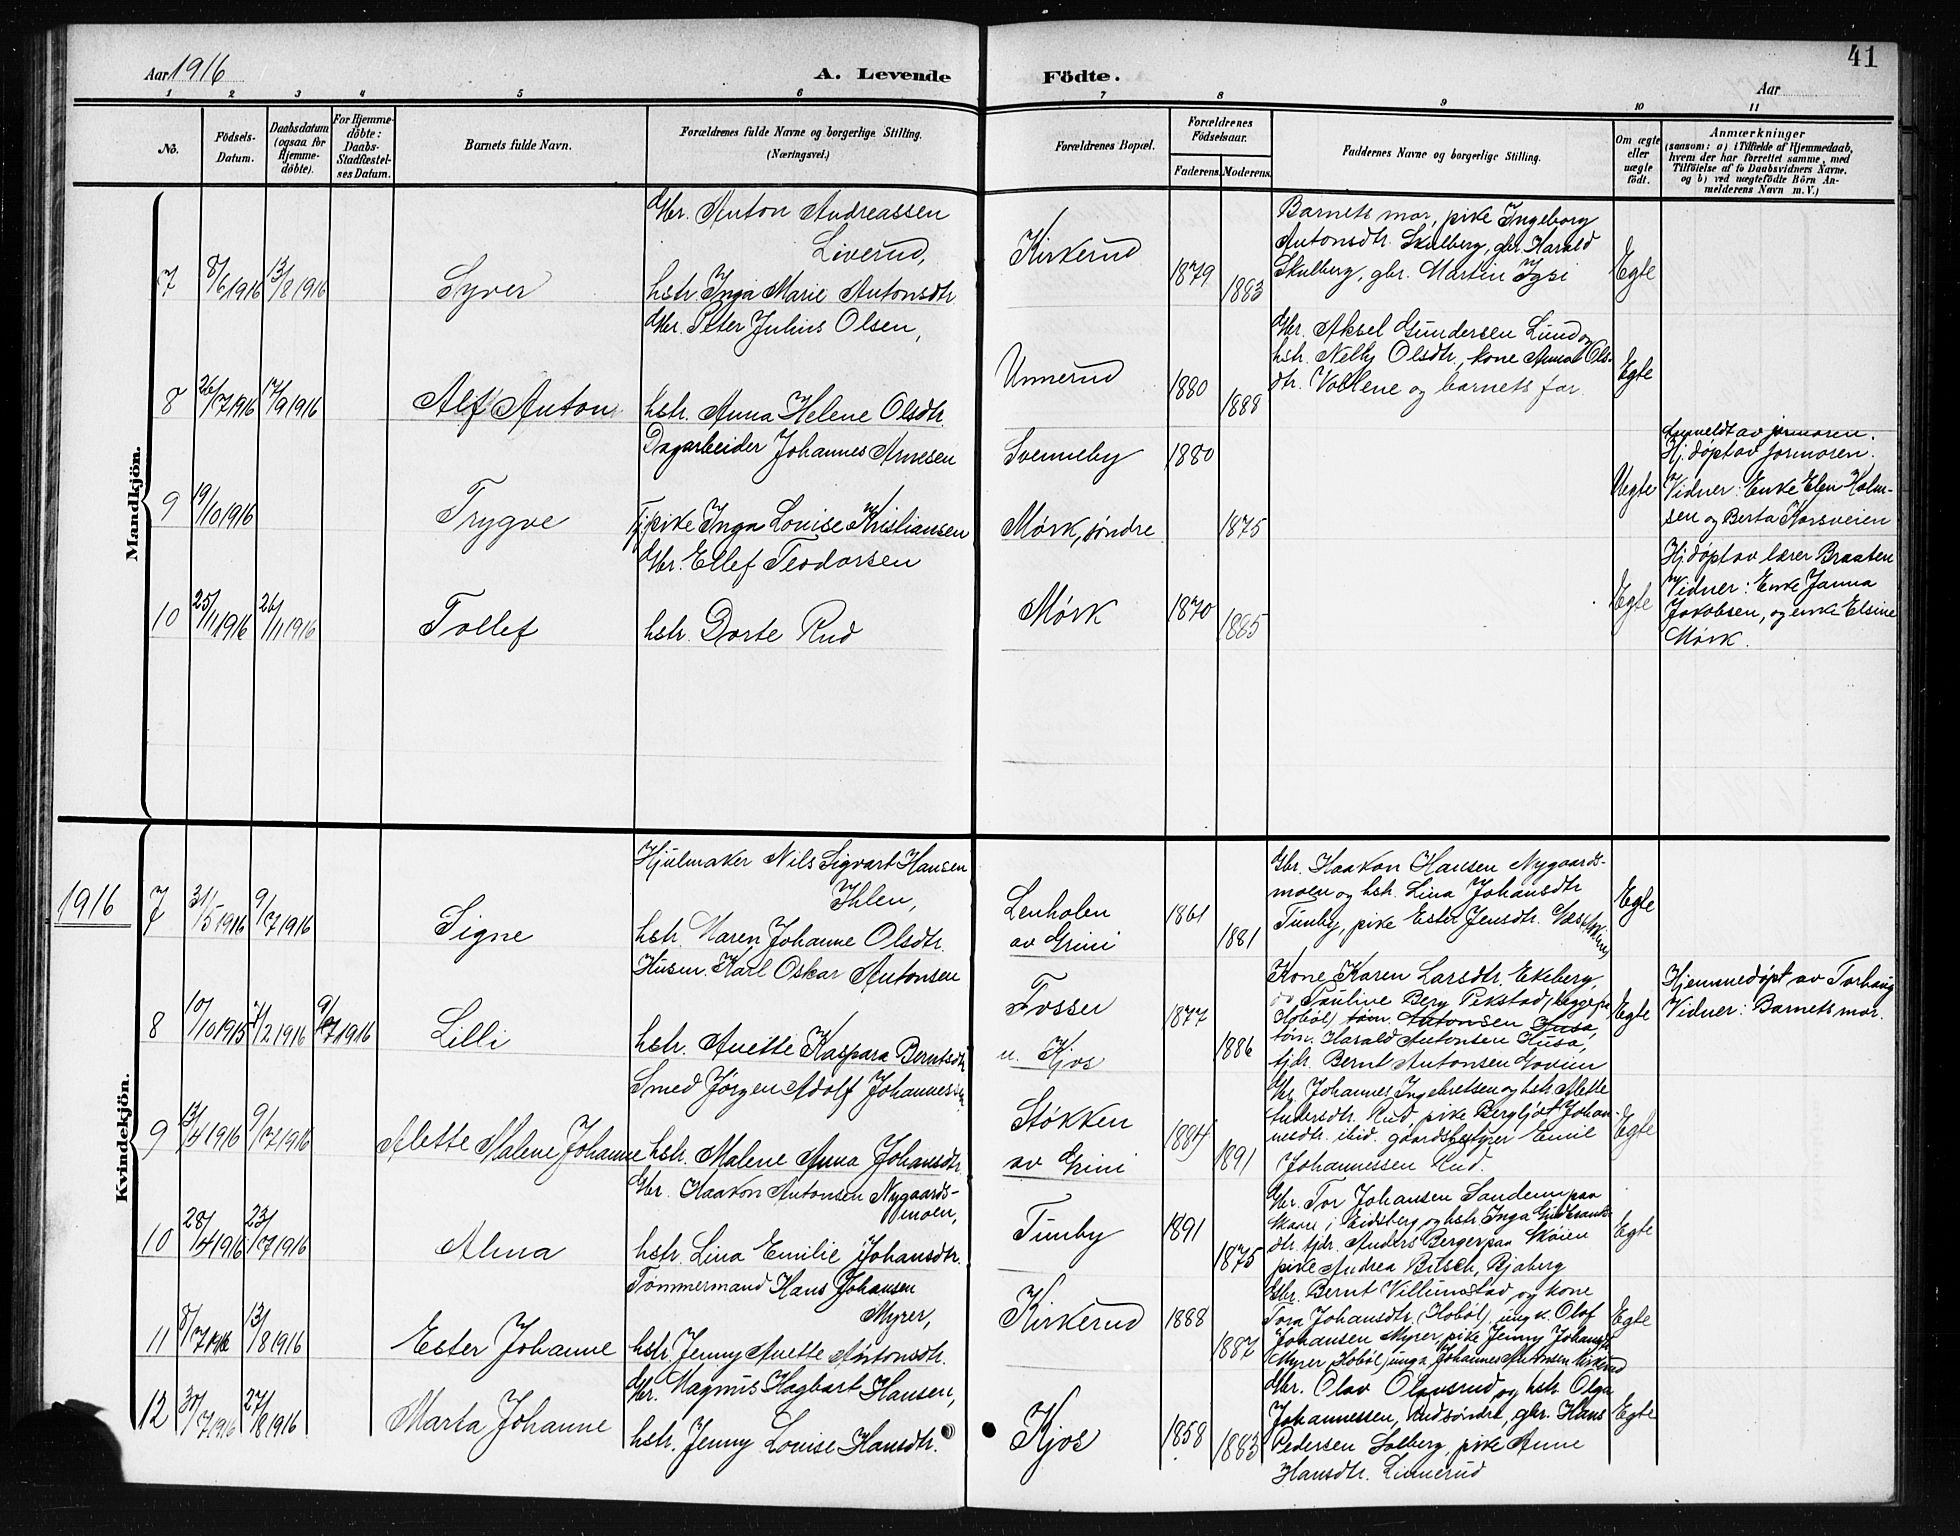 Aar 1916
A. Levende Födte.
Aar
41
1 2 3 4 5 6 7 8 9 10 11
No.
Födsels-Datum.
Daabsdatum (ogsaa for Hjemme-döbte).
For Hjemme-döbte: Daabs-Stadfæstel-ses Datum.
Barnets fulde Navn.
Forældrenes fulde Navne og borgerlige Stilling. (Næringsvei.)
Forældrenes Bopæl.
Forældrenes Födselsaar.
Faderens. Moderens.
Faddernes Navne og borgerlige Stilling.
Om ægte eller uægte födt.
Anmærkninger
(saasom: a) i Tilfælde af Hjemmedaab,
hvem der har forrettet samme, med
Tilföielse af to Daabsvidners Navne,
og b) ved uægtefödte Börn An-
melderens Navn m. V.)
Mandkjön.
7 8/6 1916 13/8 1916 Syver
Gbr. Anton Andreassen
Liverud,
hstr. Inga Marie Antonsdtr.
Kirkerud 1879 1883
Barnets mor, pike Ingeborg
Antonsdtr. Skulberg, gbr. Harald
Skulberg, gbr. Martin Igsi
Egte
8 26/7 1916 17/9 1916 Alf Anton
Gbr. Peter Julius Olsen,
hstr. Anna Helene Olsdtr.
Unnerud 1880 1888
Gbr. Aksel Gundersen Lund og
hstr. Nelly Olsdtr., kone Anna Ols-
dtr. Vollene og barnets far.
Egte
9 19/10 1916 Trygve
Dagarbeider Johannes Arnesen
Tj. pike Inga Louise Kristiansen
Svenneby 1880
Mørk, søndre 1875
Uegte
Anmeldt av jormoren.
Hj. døpt av jormoren.
Vidner: Enke Elen Holm-
sen og Berta Korsveien
10 25/11 1916 26/11 1916 Tollef
Gbr. Ellef Teodorsen
hstr. Dorte Rud
Mørk 1870 1885
Egte
Hj. døpt av lærer Braaten
Vidner: Enke Janna
Jakobsen, og enke Elsine
Mørk.
1916
Kvindekjön.
7 31/5 1916 9/7 1916 Signe
Hjulmaker Nils Sigvart Hansen
Ihlen,
hstr. Maren Johanne Olsdtr.
Lenholen
av Grini
1861 1881
Gbr. Haakon Hansen Nygaards-
moen og hstr. Lina Johansdtr
Tunby, pike Ester Jensdtr.
Egte
8 10/10 1915 7/2 1916 9/7 1916 Lilli
Husm. Karl Oskar Antonsen
hstr. Anette Kaspara Berntsdtr
Fosser
u. Kjos
1877 1886
Kone Karen Larsdtr. Ekeberg,
do Pauline Berg Pekstad, (begge fra
Hobøl) tøm. Antonsen Husa,
tøm. Harald Antonsen Husa,
tjdr. Bernt Antonsen
Egte
Hjemmedøpt av Torhaug
Vidner: Barnets mor.
9 13/4 1916 9/7 1916 Alette Malene Johanne
Smed Jørgen Adolf Johannessen
hstr. Malene Anna Johansdtr.
Støkken
av Grini
1884 1891
Gbr. Johannes Ingebretsen og hstr. Alette
Andersdtr. Rud, pike Bergljot Johan-
nesdtr. ibid. gaardsbestyrer Emil
Johannessen Rud.
Egte
10 28/4 1916 23/7 1916 Alma
Gbr. Haakon Antonsen Nygaards-
moen,
hstr. Lina Emilie Johansdtr.
Tunby 1891 1875
Gbr. Tor Johansen Sandem paa
Skare i Eidsberg og hstr. Inga
dtr. tjdr. Anders Berger paa Skøien
pike Andrea Bitsch, Rjaberg
Egte
11 8/7 1916 13/8 1916 Ester Johanne
Tømmermand Hans Johansen
Myrer,
hstr. Jenny Anette Antonsdtr.
Kirkerud 1888 1887
Gbr. Bernt Villumstad og kone
Tora Johansdtr. (Hobøl), ung k. Olof
Johansen Myrer, pike Jenny Johansdtr
Myrer (Hobøl), unga. Johannes Antonsen Kirkerud
Egte
12 30/7 1916 27/8 1916 Marta Johanne
Gbr. Magnus Hagbart Hansen,
hstr. Jenny Louise Hansdtr.
Kjos 1858 1883
Gbr. Olav Olavsrud og hstr. Olga
Johannessen, Rud søndre, gbr. Hans
Pedersen Solberg, pike Anne
Hansdtr. Linnerud
Egte